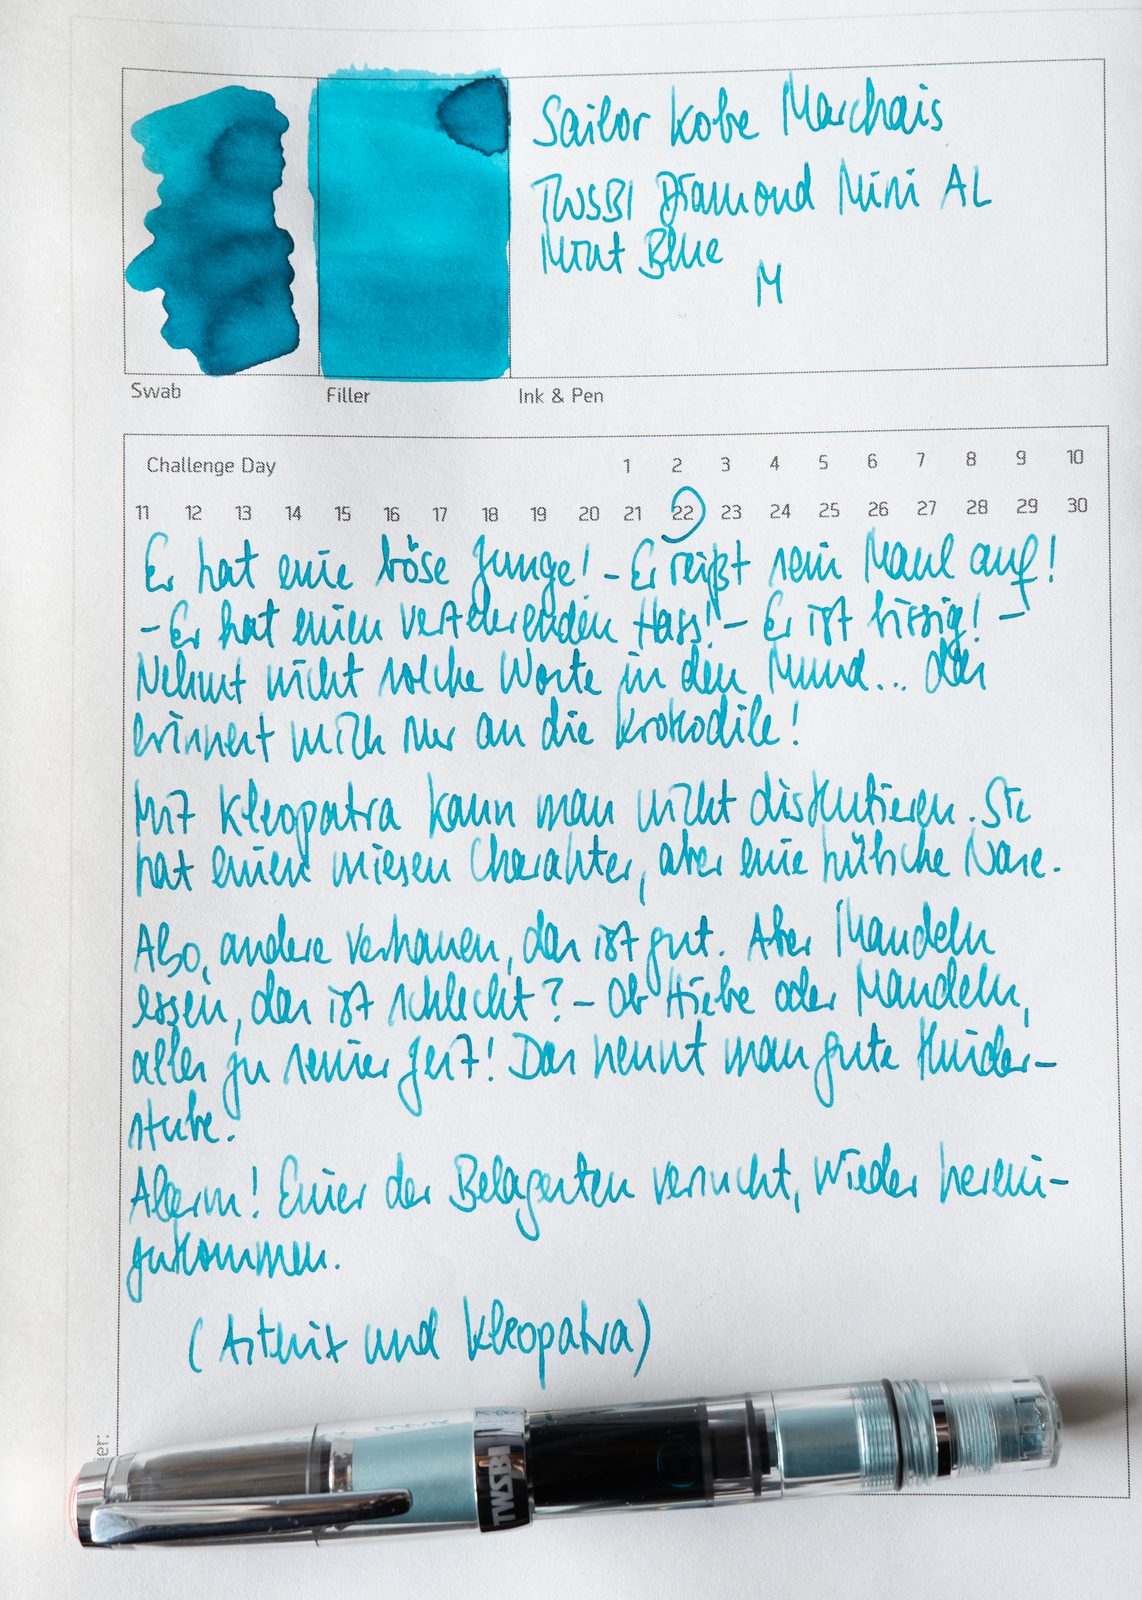 Sailor Kobe Marchais
TWSBI Diamond Mini AL
Mint Blue
M
Swab
Filler
Ink & Pen
Challenge Day 1 2 3 4 5 6 7 8 9 10
11 12 13 14 15 16 17 18 19 20 21 22 23 24 25 26 27 28 29 30
Er hat eine böse Zunge! – Er reißt sein Maul auf!
– Er hat einen verzehrenden Hass! – Er ist bissig! –
Nehmt nicht solche Worte in den Mund... das
erinnert mich nur an die Krokodile!
Mit Kleopatra kann man nicht diskutieren. Sie
hat einen miesen Charakter, aber eine hübsche Nase.
Also, andere verhauen, das ist gut. Aber Mandeln
essen, das ist schlecht? – Ob Hiebe oder Mandeln,
alles zu seiner Zeit! Das nennt man gute Kinder-
stube.
Alarm! Einer der Belagerten versucht, wieder herein-
zukommen.
(Asterix und Kleopatra)
TWSBI